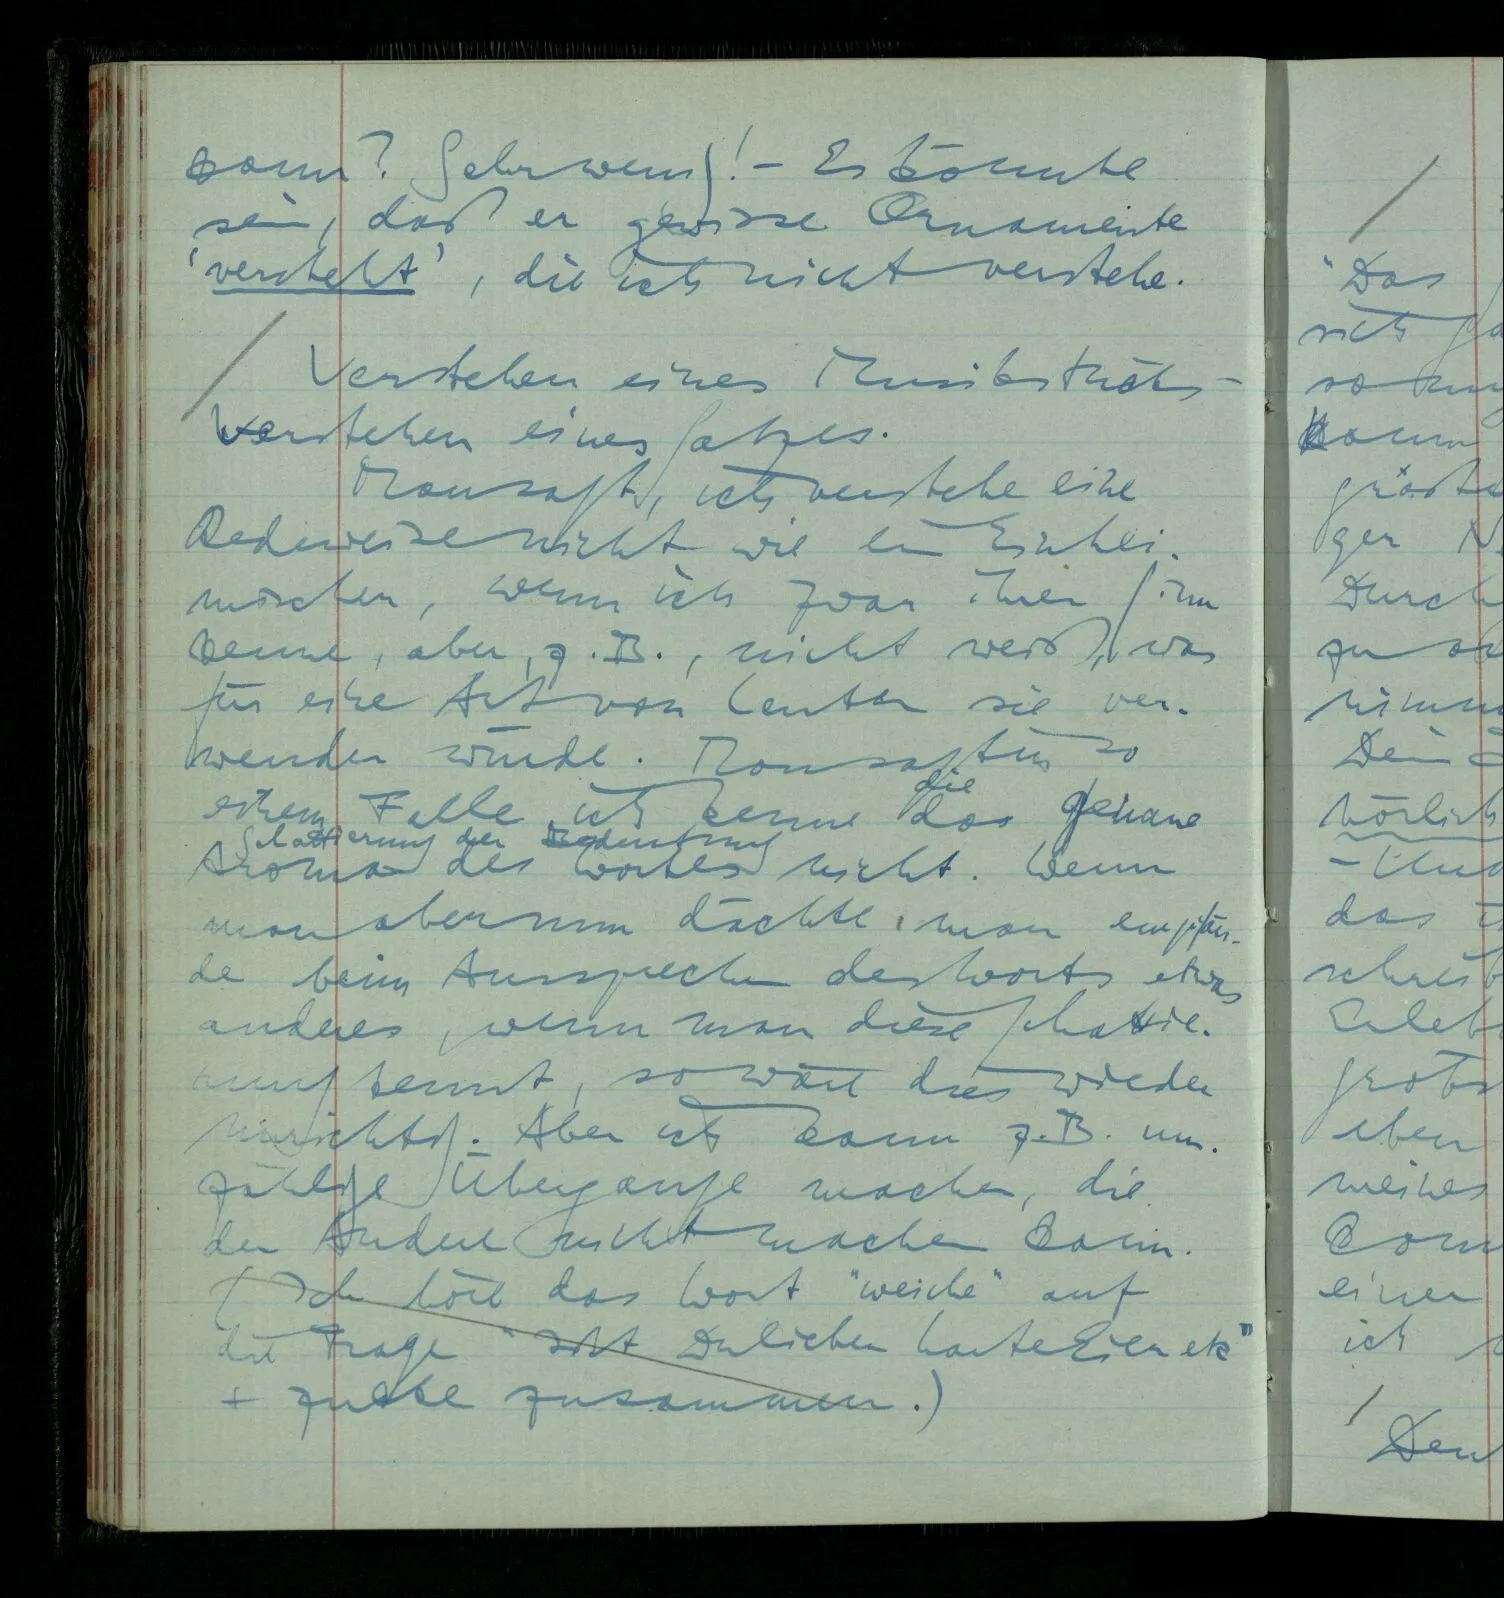 kann? Sehr wenig! – Es könnte
sein, daß er gewisse Ornamente
'versteht', die ich nicht verstehe.
/
Verstehen eines Musikstücks –
Verstehen eines Satzes.
Man sagt, ich verstehe eine
Redeweise nicht wie ein Einhei-
mischer, wenn ich zwar ihren Sinn
kenne, aber, z.B., nicht weiß, was
für eine Art von Leuten sie ver-
wenden würde. Man sagt in so
einem Falle, ich kenne das die genaue
Schattierung der Bedeutung
Aroma des Wortes nicht. Wenn
man aber nun dächte, man empfän-
de beim Aussprechen des Worts etwas
anderes, wenn man diese Schattie-
rung kennt, so wäre dies wieder
unrichtig. Aber ich kann z.B. un-
zählige Übergänge machen, die
der Andere nicht machen kann.
(Ich höre das Wort "weiche" auf
die Frage "Ißt Du lieber harte Eier etc"
+ zucke zusammen.)
/
"Das
sich
so
kann
größte
ger
Durch
zu
Dein
hörlich
– Und
das
schreib
Erleb
große
eben
meines
einer
ich
/